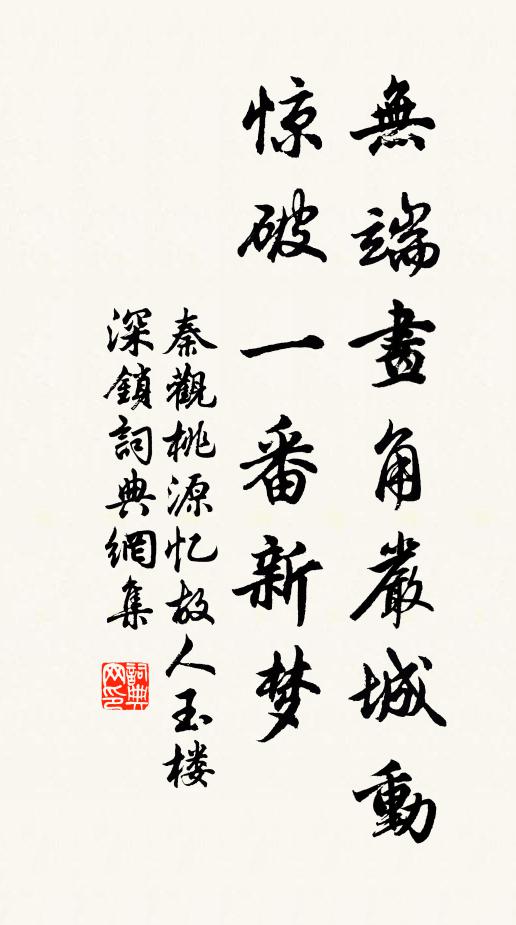 無端畫角嚴城動
惊破一番新梦
秦觀桃源忆故人玉楼
深鎖詞典網集
詞典网印